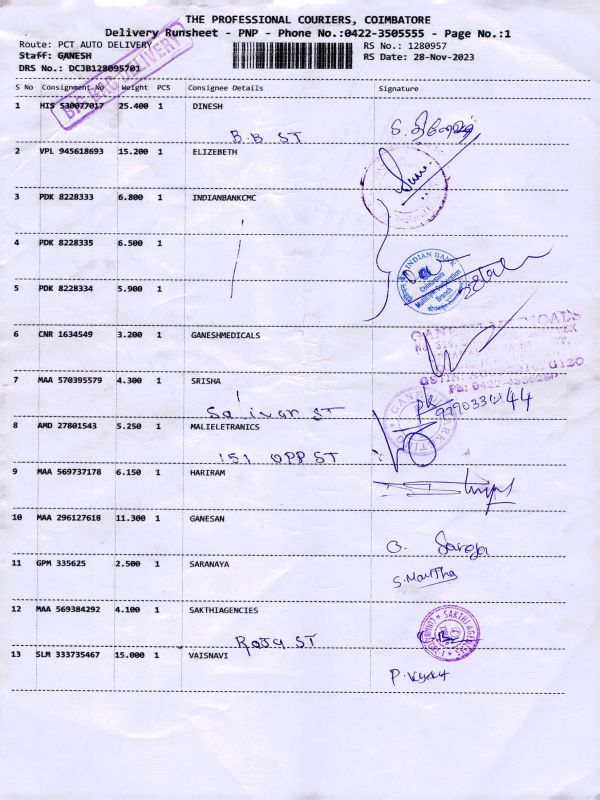 THE PROFESSIONAL COURIERS, COIMBATORE
Delivery Runsheet - PNP - Phone No.:0422-3505555 - Page No.:1
Route: PCT AUTO DELIVERY RS No.: 1280957
Staff: GANESH RS Date: 28-Nov-2023
DRS No.: DCJB128095701
BIG BAG DELIVERY
S No Consignment No Weight PCS Consignee Details Signature
1 HIS 530077017 25.400 1 DINESH
B.B ST
2 VPL 945618693 15.200 1 ELIZEBETH
3 PDK 8228333 6.800 1 INDIANBANKCMC
4 PDK 8228335 6.500 1
INDIAN BANK
Coimbatore
Municipal Corporation
Branch
5 PDK 8228334 5.900 1
6 CNR 1634549 3.200 1 GANESHMEDICALS
7 MAA 570395579 4.300 1 SRISHA
ST
8 AMD 27801543 5.250 1 MALIELETRANICS
151 OPP ST
9 MAA 569737178 6.150 1 HARIRAM
10 MAA 296127618 11.300 1 GANESAN
G. Saroja
11 GPM 335625 2.500 1 SARANAYA
12 MAA 569384292 4.100 1 SAKTHIAGENCIES
SAKTHI AGENCIES
Raja ST
13 SLM 333735467 15.000 1 VAISNAVI